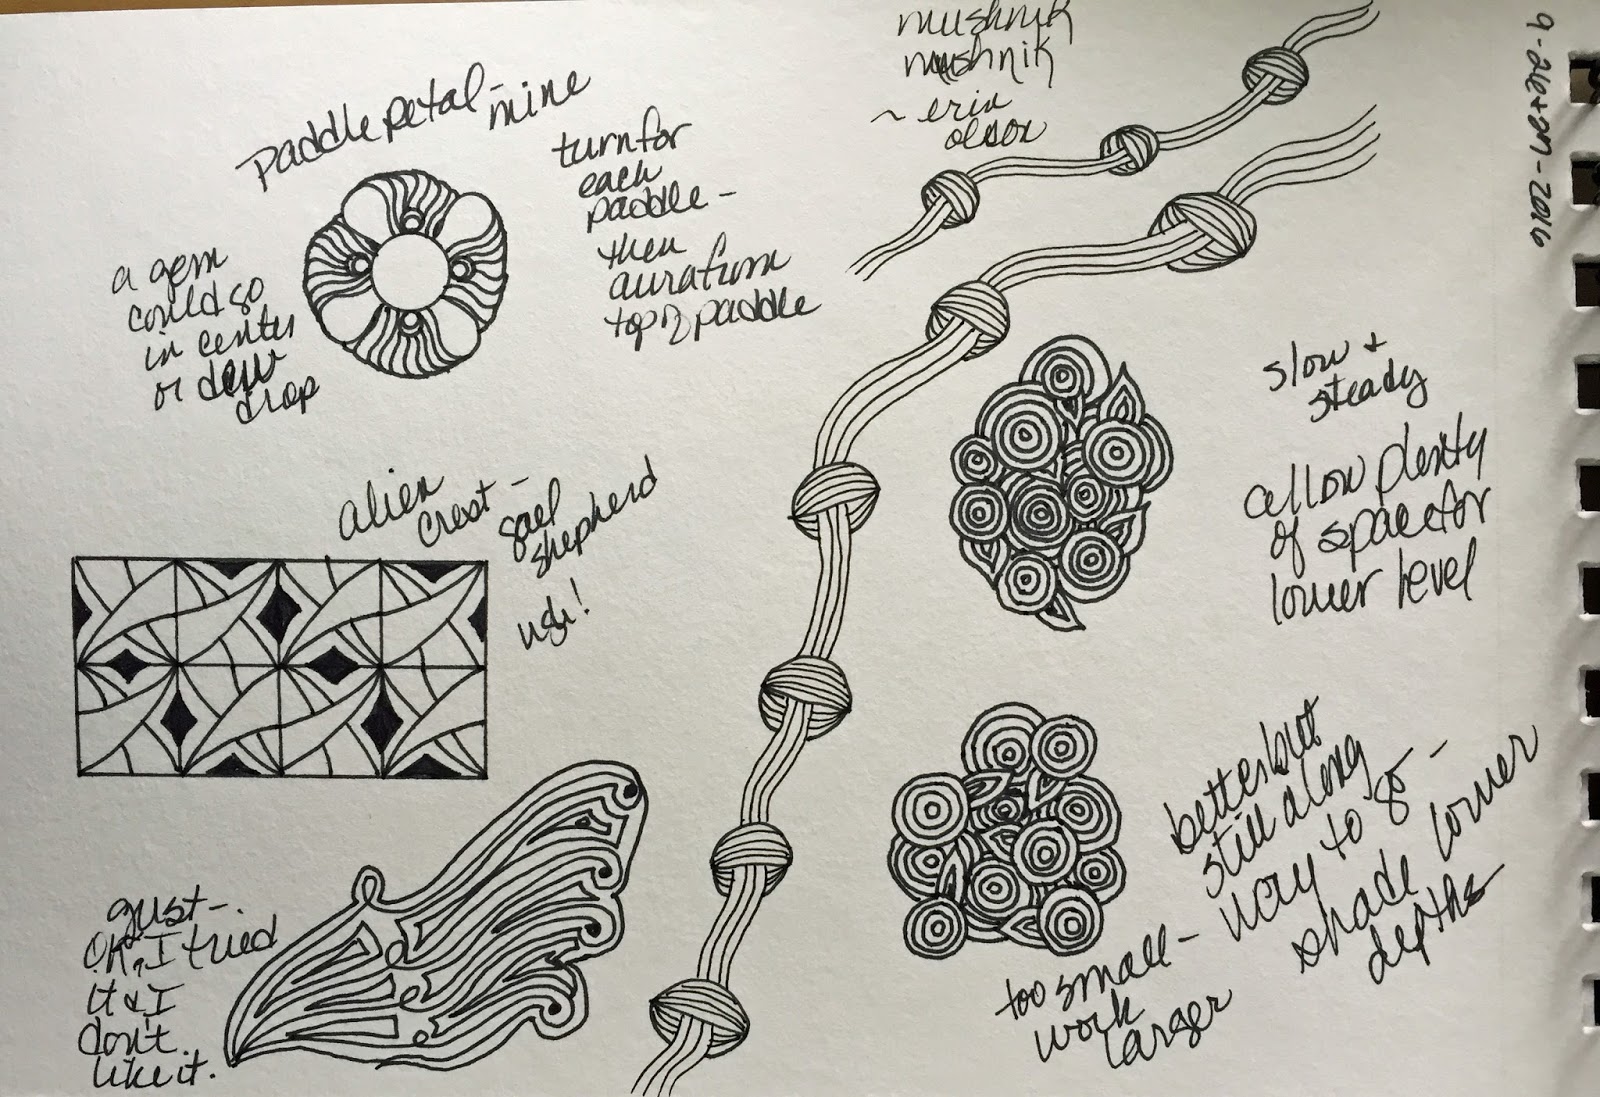 paddle petal - mine
turn for
each
paddle -
then
aura from
top of paddle
a gem
could go
in center
or dew
drop
mushnik
mushnik
~ erin
olson
9-26+27-2016
alien
crest -
gael
shepherd
ugh!
slow +
steady
allow plenty
of space for
lower level
gust -
OK, I tried
it & I
don't
like it.
better but
still a long
way to go -
shade lower
depths
too small -
work
larger